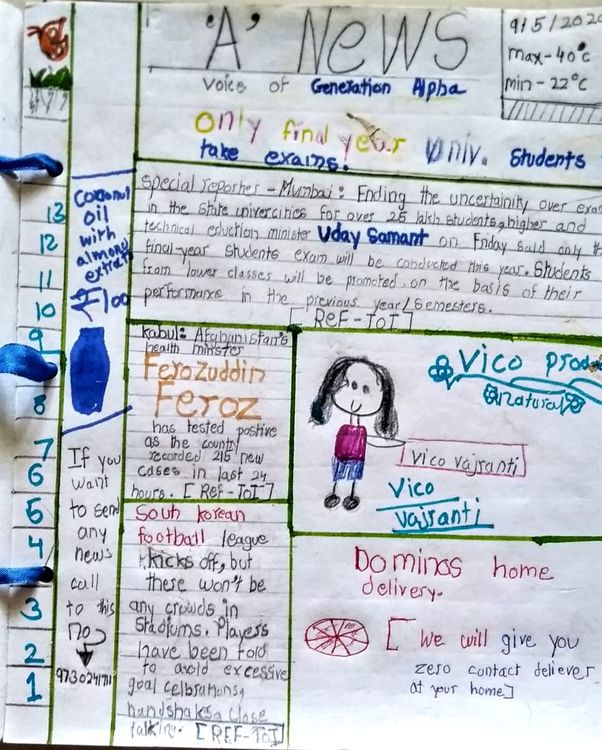 'A' News
Voice of Generation Alpha
9/5/202
max-40°c
min-22°c
only final year Univ. Students
take exams.
Special reporter - Mumbai: Ending the uncertainity over exa
in the state univercities for over 25 lakh students, higher and
technical eduction minister Uday Samant on Friday said only th
final-year students exam will be conducted this year. Students
from lower classes will be promoted on the basis of their
performance in the previous year/semesters.
[Ref-ToI]
Coconut
oil
with
almond
extract
₹100
13
12
11
10
9
8
7
6
5
4
3
2
1
If you
want
to send
any
news
call
to this
no
9730241711
kabul: Afghanistan's
health minster
Ferozuddin
Feroz
has tested positive
as the country
recorded 215 new
cases in last 24
hours. [Ref-ToI]
South korean
football league
kicks off, but
there won't be
any crowds in
Stadiums. Players
have been told
to avoid excessive
goal celbrations,
handshaks & close
talking. [REF-ToI]
Vico prod
natural
Vico vajranti
Vico
vajranti
Dominos home
delivery.
[We will give you
zero contact deliever
at your home]